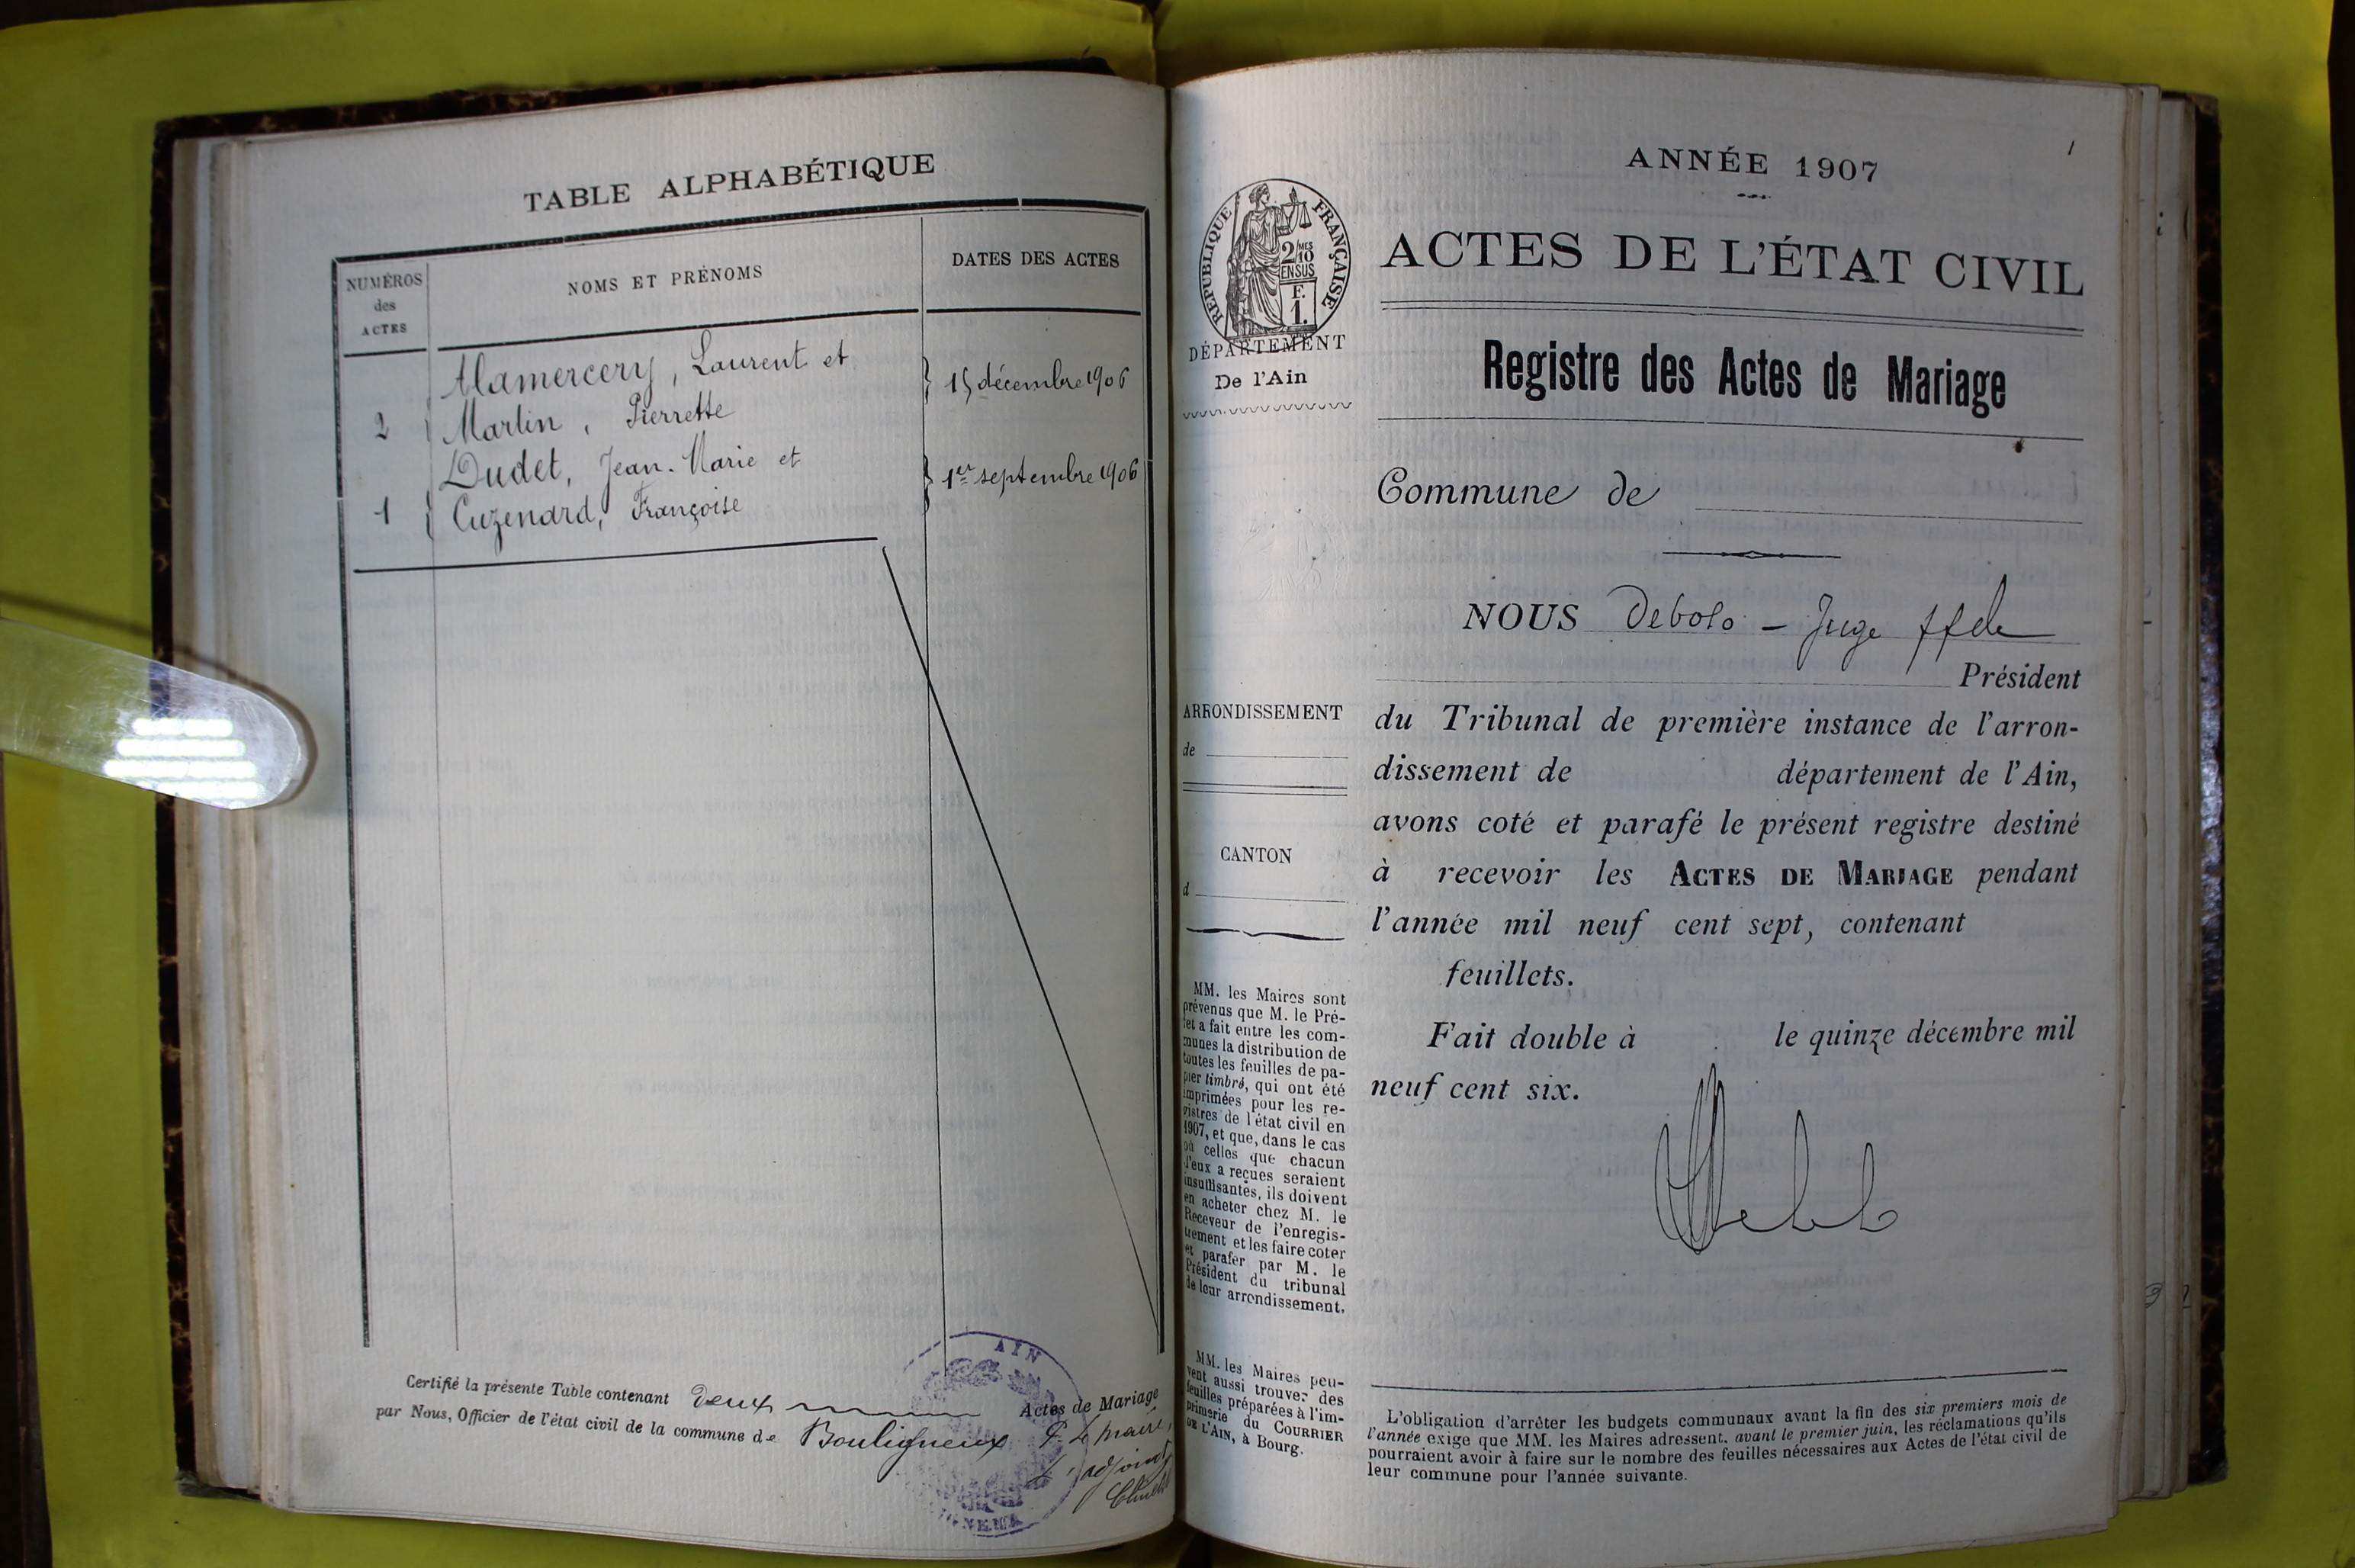 TABLE ALPHABÉTIQUE
NUMÉROS
des
ACTES
NOMS ET PRÉNOMS
DATES DES ACTES
Alamercery, Laurent et
2
Martin, Pierrette
15 décembre 1906
Dudet, Jean-Marie et
1
Cuzenard, Françoise
1er septembre 1906
Certifié la présente Table contenant deux Actes de Mariage
par Nous, Officier de l'état civil de la commune de Bouligneux
P. Le maire,
L'adjoint
AIN
ANNÉE 1907
1
RÉPUBLIQUE FRANÇAISE
2/10
MES
EN SUS
F.
1.
DÉPARTEMENT
De l'Ain
ACTES DE L'ÉTAT CIVIL
Registre des Actes de Mariage
Commune de
NOUS Debolo - Juge ffde
Président
du Tribunal de première instance de l'arron-
dissement de département de l'Ain,
avons coté et parafé le présent registre destiné
à recevoir les ACTES DE MARIAGE pendant
l'année mil neuf cent sept, contenant
feuillets.
Fait double à le quinze décembre mil
neuf cent six.
ARRONDISSEMENT
de
CANTON
d
MM. les Maires sont
prévenus que M. le Pré-
fet a fait entre les com-
munes la distribution de
toutes les feuilles de pa-
pier timbré, qui ont été
imprimées pour les re-
gistres de l'état civil en
1907, et que, dans le cas
où celles que chacun
d'eux a reçues seraient
insuffisantes, ils doivent
en acheter chez M. le
Receveur de l'enregis-
trement et les faire coter
et parafer par M. le
Président du tribunal
de leur arrondissement.
MM. les Maires peu-
vent aussi trouver des
feuilles préparées à l'im-
primerie du COURRIER
DE L'AIN, à Bourg.
L'obligation d'arrêter les budgets communaux avant la fin des six premiers mois de
l'année exige que MM. les Maires adressent, avant le premier juin, les réclamations qu'ils
pourraient avoir à faire sur le nombre des feuilles nécessaires aux Actes de l'état civil de
leur commune pour l'année suivante.